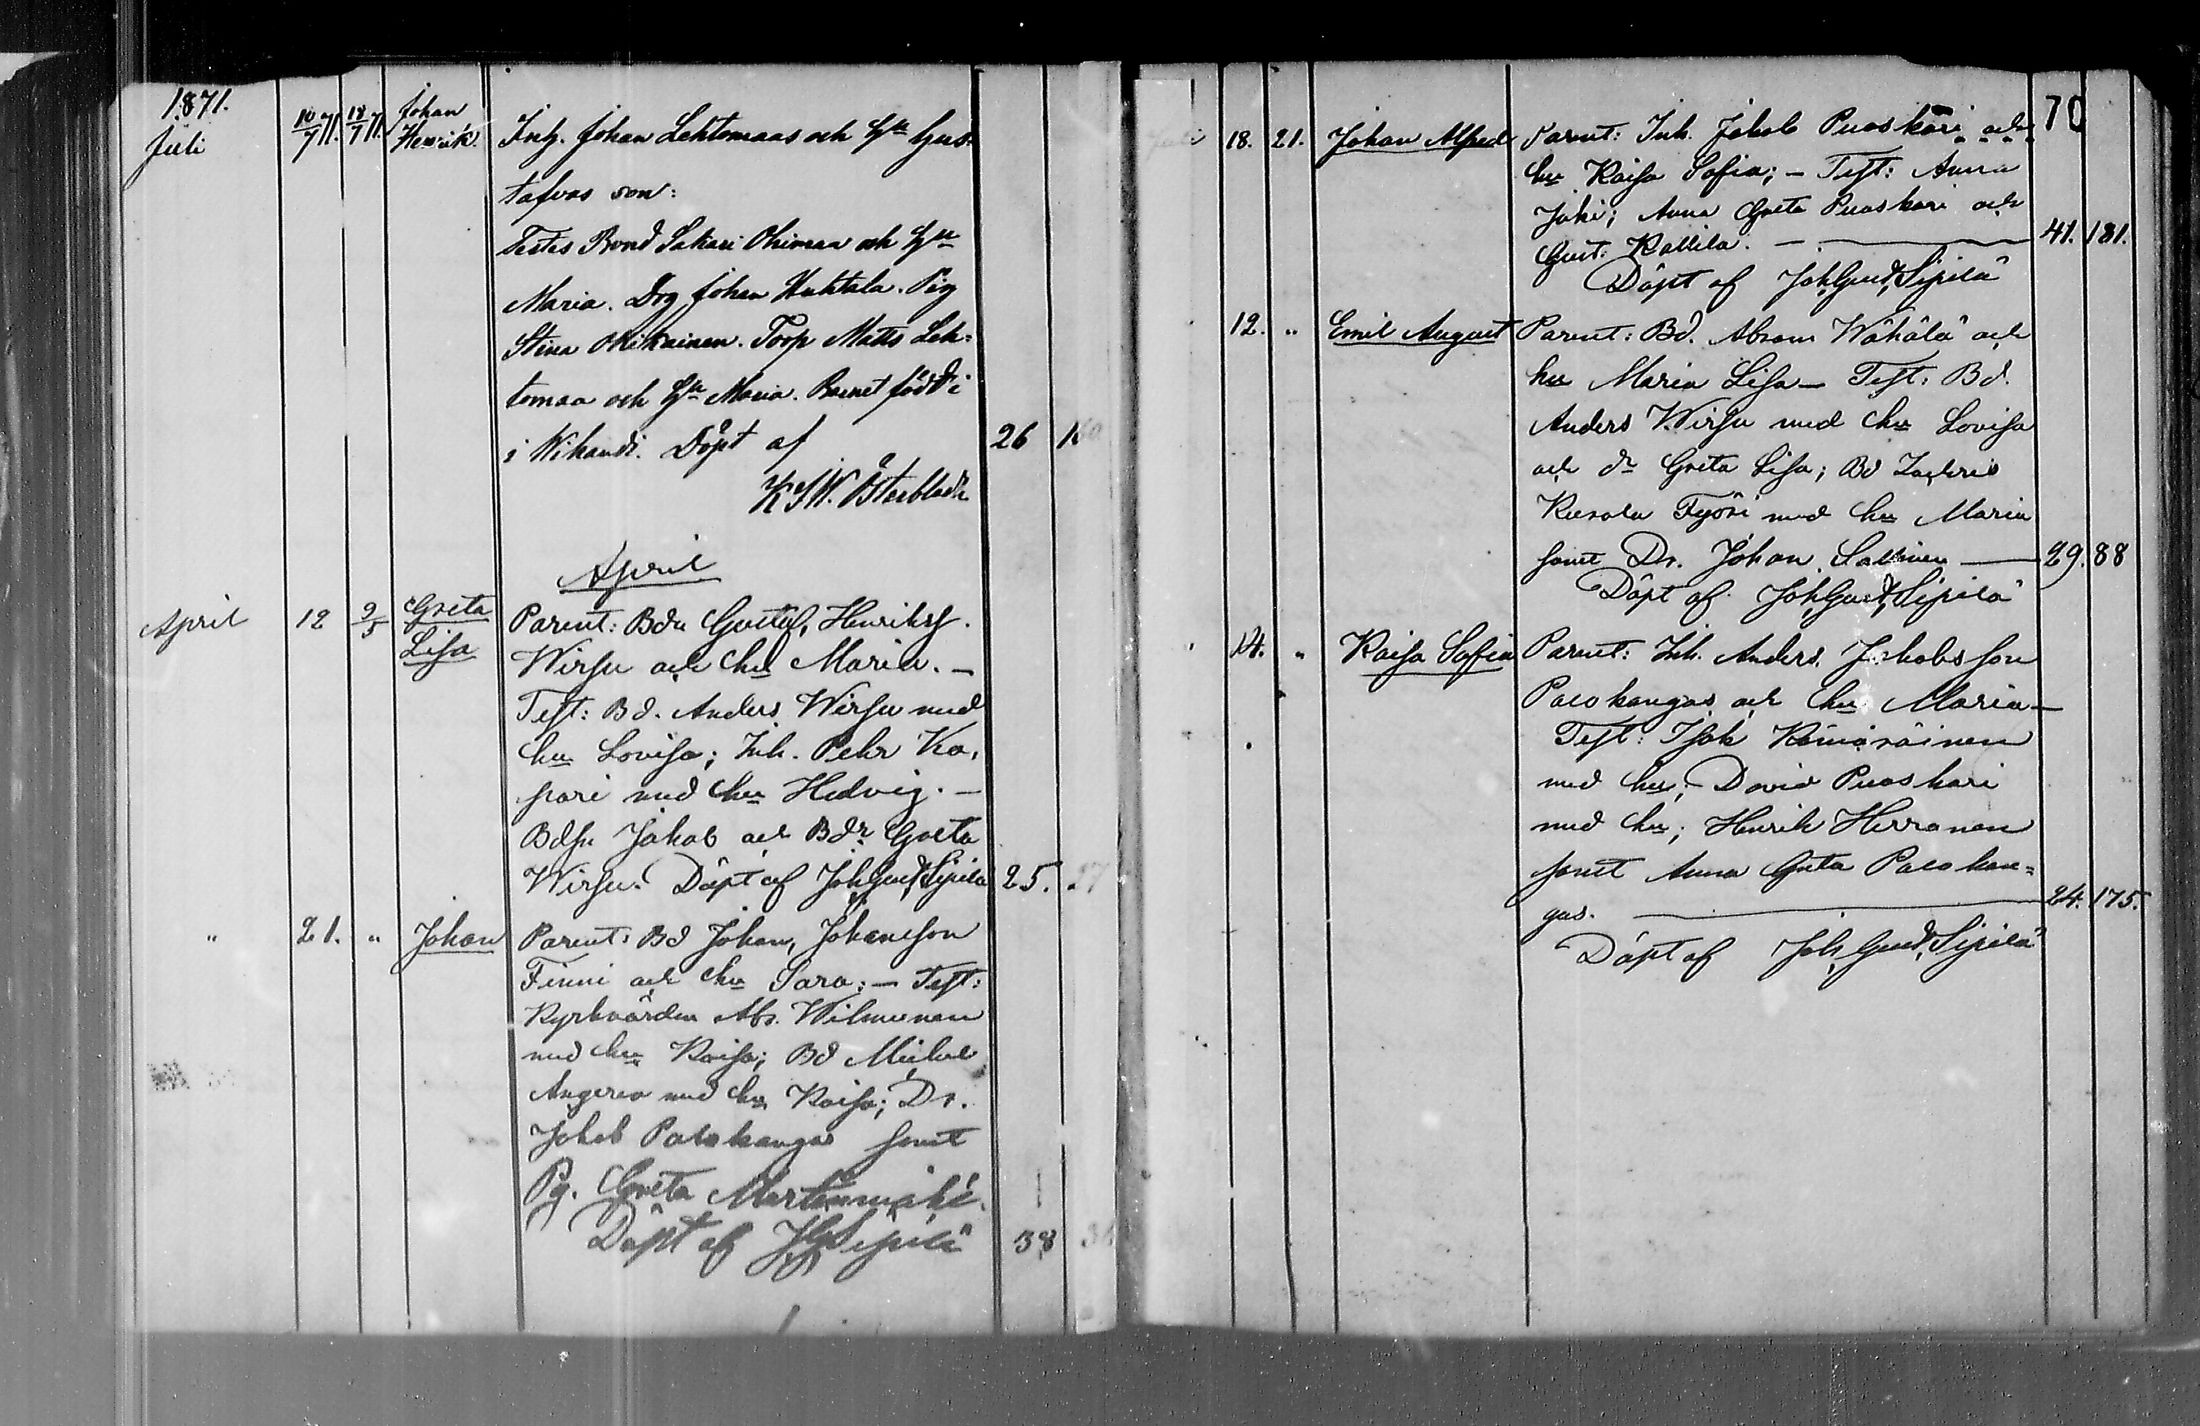 1871.
Juli
10/7 71. 18/7 71. Johan Henrik.
Inh. Johan Lehtomaas och H:u Gus-
tafvas son:
Testes Bond Sakari Ohimaa och H:u
Maria. Drg Johan Huhtala. Pig
Stina Mikkainen. Torp Matts Leh-
tomaa och H:u Maria. Barnet född i
i Wihandi. Döpt af 26
K. J. W. Österbladh
April
April 12 9/5 Greta Lisa
Parent: Bdn Gustaf, Henrikss.
Wirsu och hu Maria. —
Test: Bd. Anders Wirsu med
hu Lovisa; Inh. Pehr Ka-
pari med hu Hedvig. —
Bdsn Jakob och Bdr Greta
Wirsu. Döpt af Joh. Gust. Sipilä 25.
" 21. " Johan
Parent: Bd Johan, Johansson
Finni och hu Sara; — Test:
Kyrkvärden Abr. Wilmunen
med hu Kaisa; Bd Michel
Angeria med hu Kaisa; Dr.
Jakob Palokangas samt
Pg. Greta Martinmäki.
Döpt af J G Sipilä 38
70
Juli 18. 21. Johan Alfred
Parent: Inh. Jakob Puoskari och
hu Kaisa Sofia; — Test: Anna
Joki; Anna Greta Puoskari och
Gust. Kallila. — 41. 181.
Döpt af Joh. Gust. Sipilä
12. " Emil August
Parent: Bd. Abram Wähälä och
hu Maria Lisa — Test: Bd.
Anders Wirsu med hu Lovisa
och dr Greta Lisa; Bd Zachris
Kusala Työri med hu Maria
samt Dr. Johan Sallinen — 29. 88
Döpt af Joh. Gust. Sipilä
14. " Kaisa Sofia
Parent: Inh. Anders Jakobsson
Palokangas och hu Maria —
Test: Isak Kämäräinen
med hu; David Puoskari
med hu; Henrik Herranen
samt Anna Greta Palokan-
gas. — 24. 175.
Döpt af Joh. Gust. Sipilä